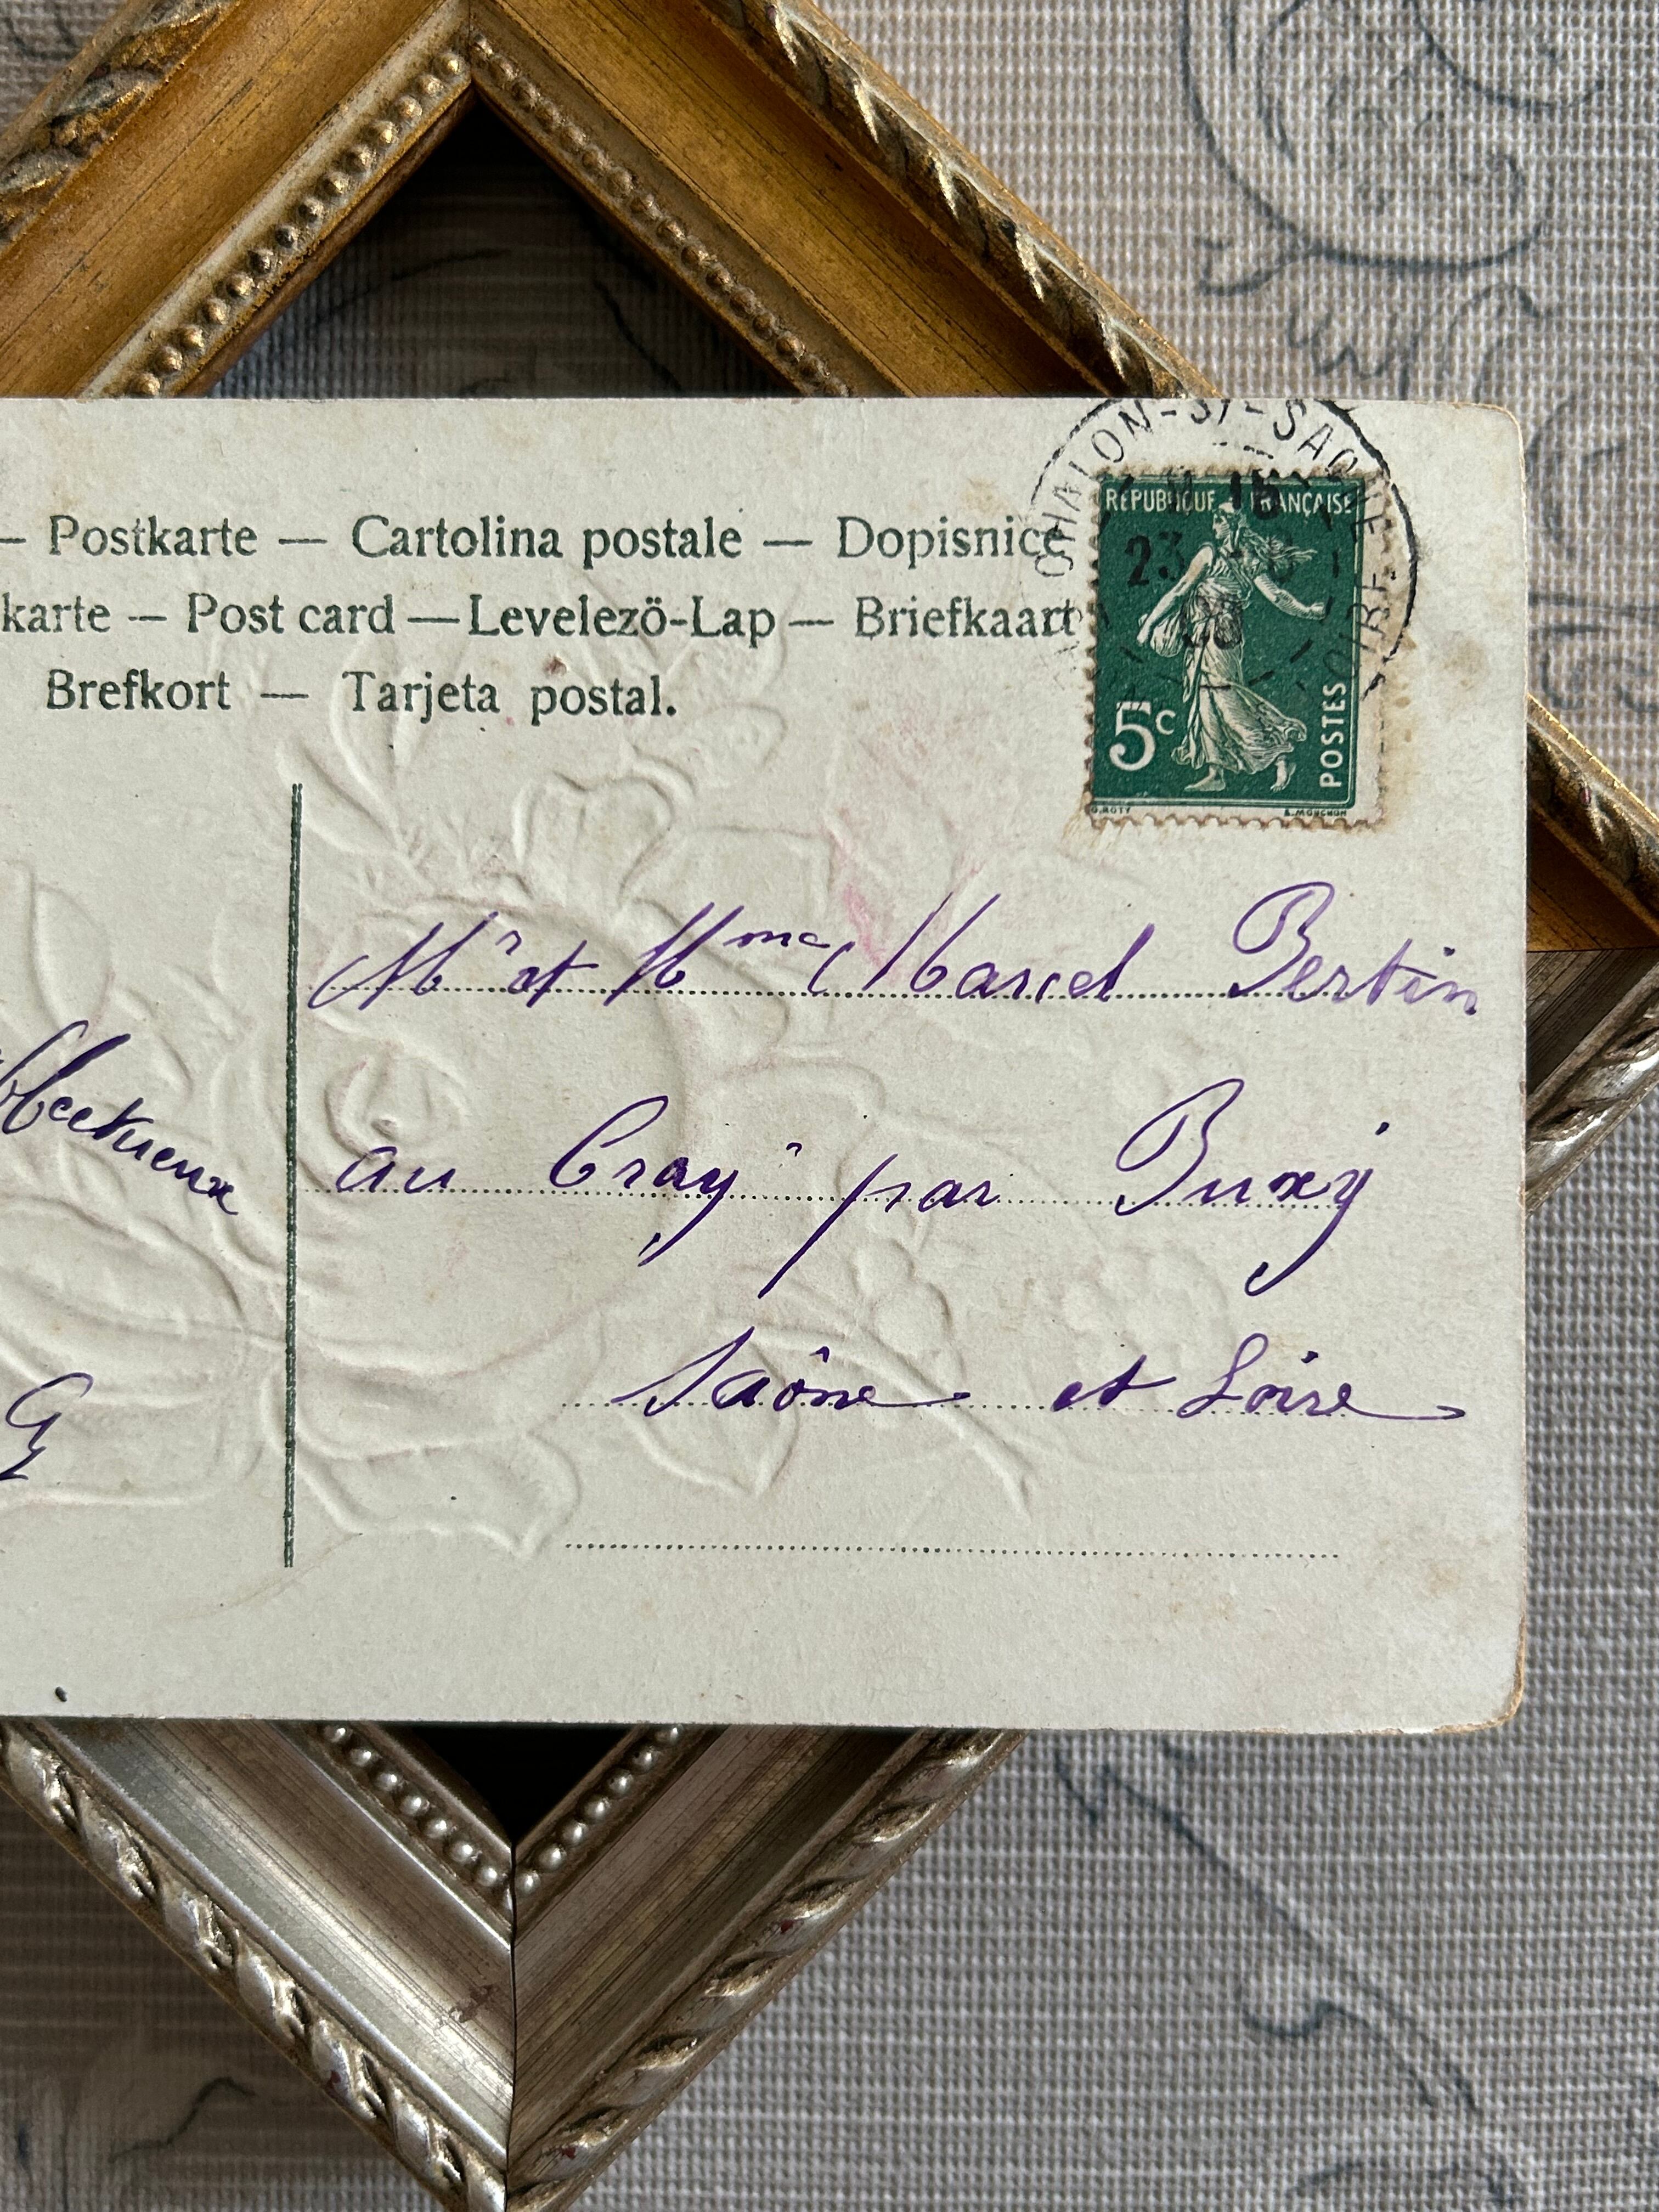 – Postkarte — Cartolina postale — Dopisnice
karte — Post card — Levelezö-Lap — Briefkaart
Brefkort — Tarjeta postal.
CHALON-ST-SAONE
23
RÉPUBLIQUE FRANÇAISE
5c
POSTES
O. ROTY
E. MOUCHON
Mr et Mme Marcel Bertin
au Cray par Buxy
Saône et Loire
ffectueux
G